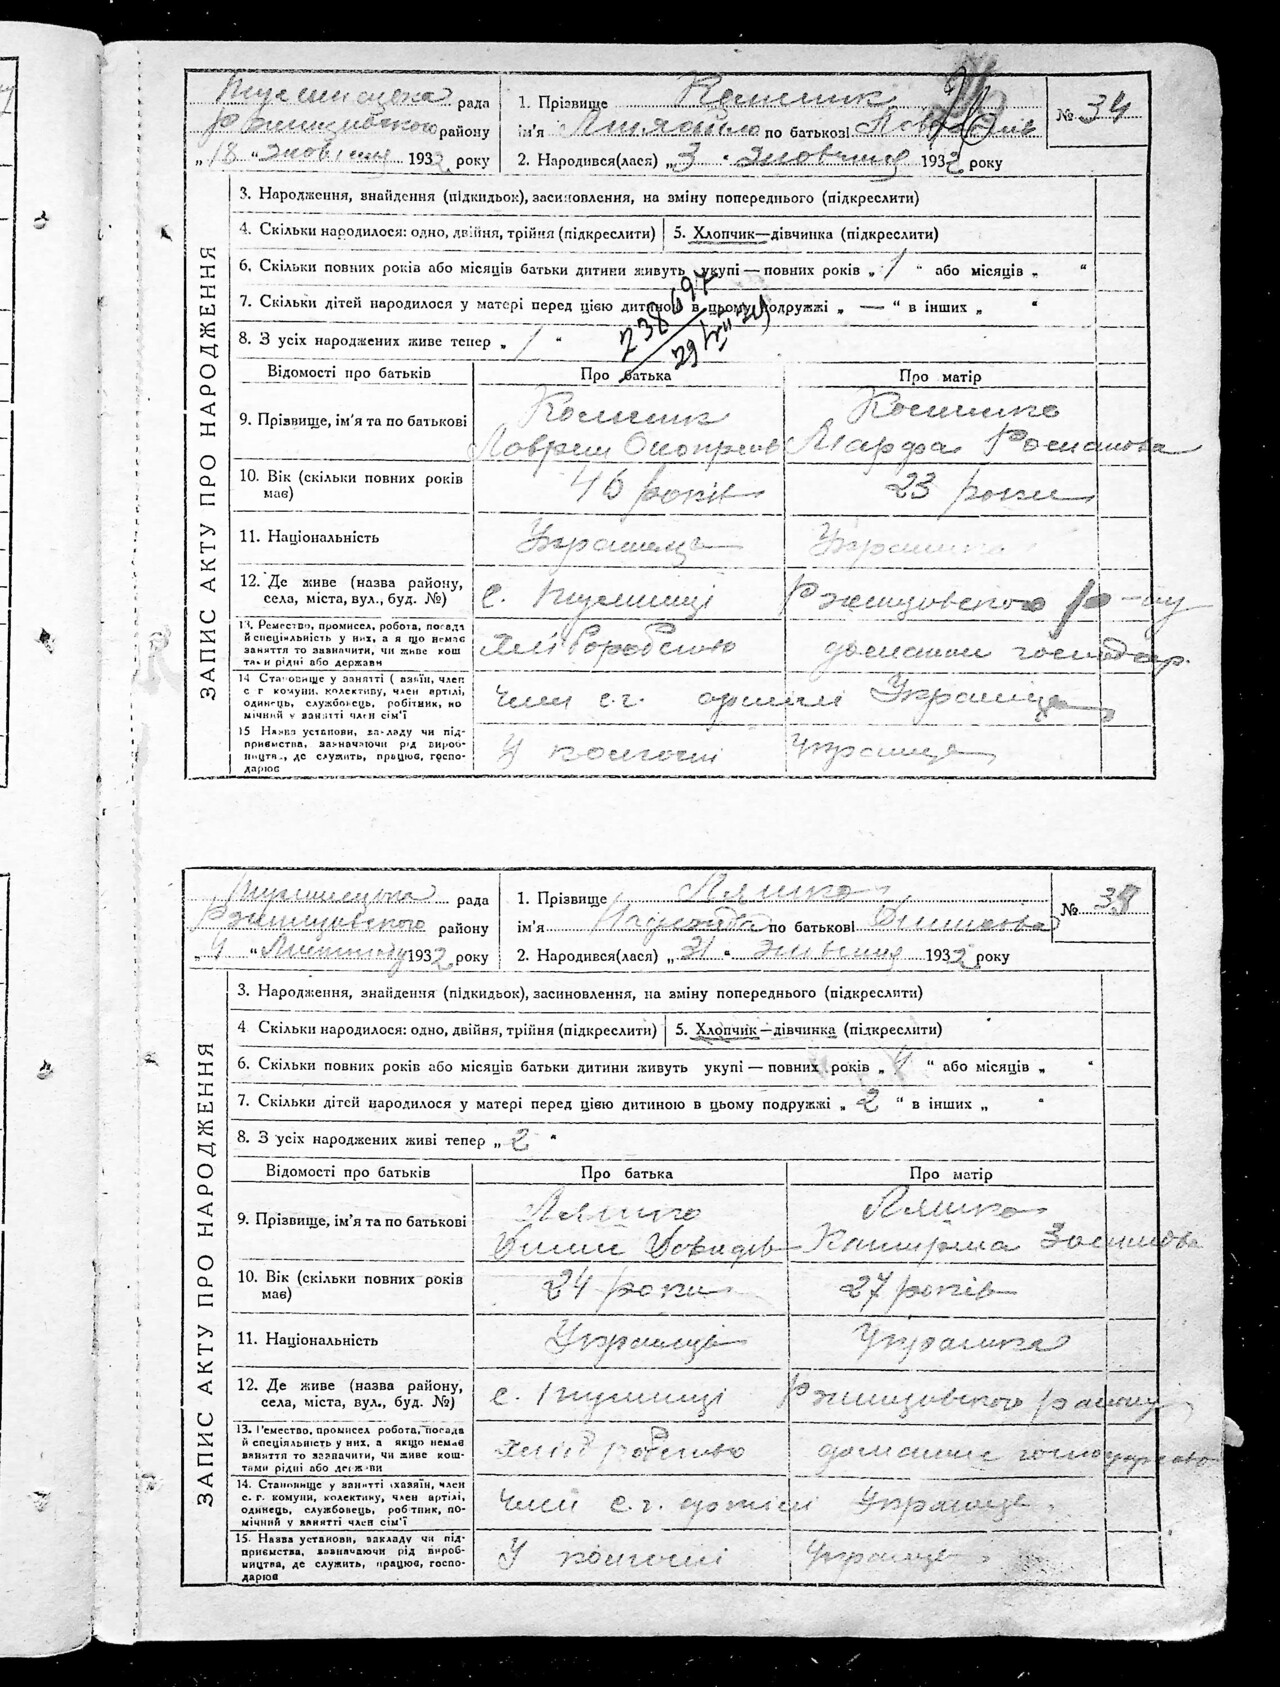 рада
Ржищівського району
„18 " жовтня 1932 року
1. Прізвище
ім'я Михайло по батькові
2. Народився(лася) „3 " жовтня 1932 року
№ 34
ЗАПИС АКТУ ПРО НАРОДЖЕННЯ
3. Народження, знайдення (підкидьок), засиновлення, на зміну попереднього (підкреслити)
4. Скільки народилося: одно, двійня, трійня (підкреслити)
5. Хлопчик—дівчинка (підкреслити)
6. Скільки повних років або місяців батьки дитини живуть укупі — повних років „ 1 " або місяців „ "
7. Скільки дітей народилося у матері перед цією дитиною в цьому подружжі „ — " в інших „ "
8. З усіх народжених живе тепер „ 1 "
238697
Відомості про батьків
Про батька
Про матір
9. Прізвище, ім'я та по батькові
Марфа Романова
10. Вік (скільки повних років має)
46 років
23 роки
11. Національність
Українець
Українка
12. Де живе (назва району, села, міста, вул., буд. №)
с.
Ржищовского р-ну
13. Ремество, промисел, робота, посада й спеціяльність у них, а якщо немає заняття то зазначити, чи живе коштами рідні або держави
хліборобство
домашн господар.
14 Становище у занятті (хазяїн, член с г комуни, колективу, член артілі, одинець, службовець, робітник, помічний у занятті член сім'ї
член с.г. артілі
15 Назва установи, закладу чи підприємства, зазначаючи рід виробництва, де служить, працює, господарює
У колгоспі
рада
Ржищовского району
„4 " 1932 року
1. Прізвище Ляшко
ім'я по батькові
2. Народився(лася) „31 " жовтня 1932 року
№
ЗАПИС АКТУ ПРО НАРОДЖЕННЯ
3. Народження, знайдення (підкидьок), засиновлення, на зміну попереднього (підкреслити)
4 Скільки народилося: одно, двійня, трійня (підкреслити)
5. Хлопчик—дівчинка (підкреслити)
6. Скільки повних років або місяців батьки дитини живуть укупі — повних років „ 4 " або місяців „ "
7. Скільки дітей народилося у матері перед цією дитиною в цьому подружжі „ 2 " в інших „ "
8. З усіх народжених живі тепер „ 2 "
Відомості про батьків
Про батька
Про матір
9. Прізвище, ім'я та по батькові
Ляшко
Ляшко
10. Вік (скільки повних років має)
24 роки
27 років
11. Національність
Українець
Українка
12. Де живе (назва району, села, міста, вул., буд. №)
с.
Ржищовского району
13. Ремество, промисел робота, посада й спеціяльність у них, а якщо немає заняття то зазначити, чи живе коштами рідні або держави
домашнє господарство
14. Становище у занятті (хазяїн, член с. г. комуни, колективу, член артілі, одинець, службовець, робітник, помічний у занятті член сім'ї
член с.г. артілі
15. Назва установи, закладу чи підприємства, зазначаючи рід виробництва, де служить, працює, господарює
У колгоспі